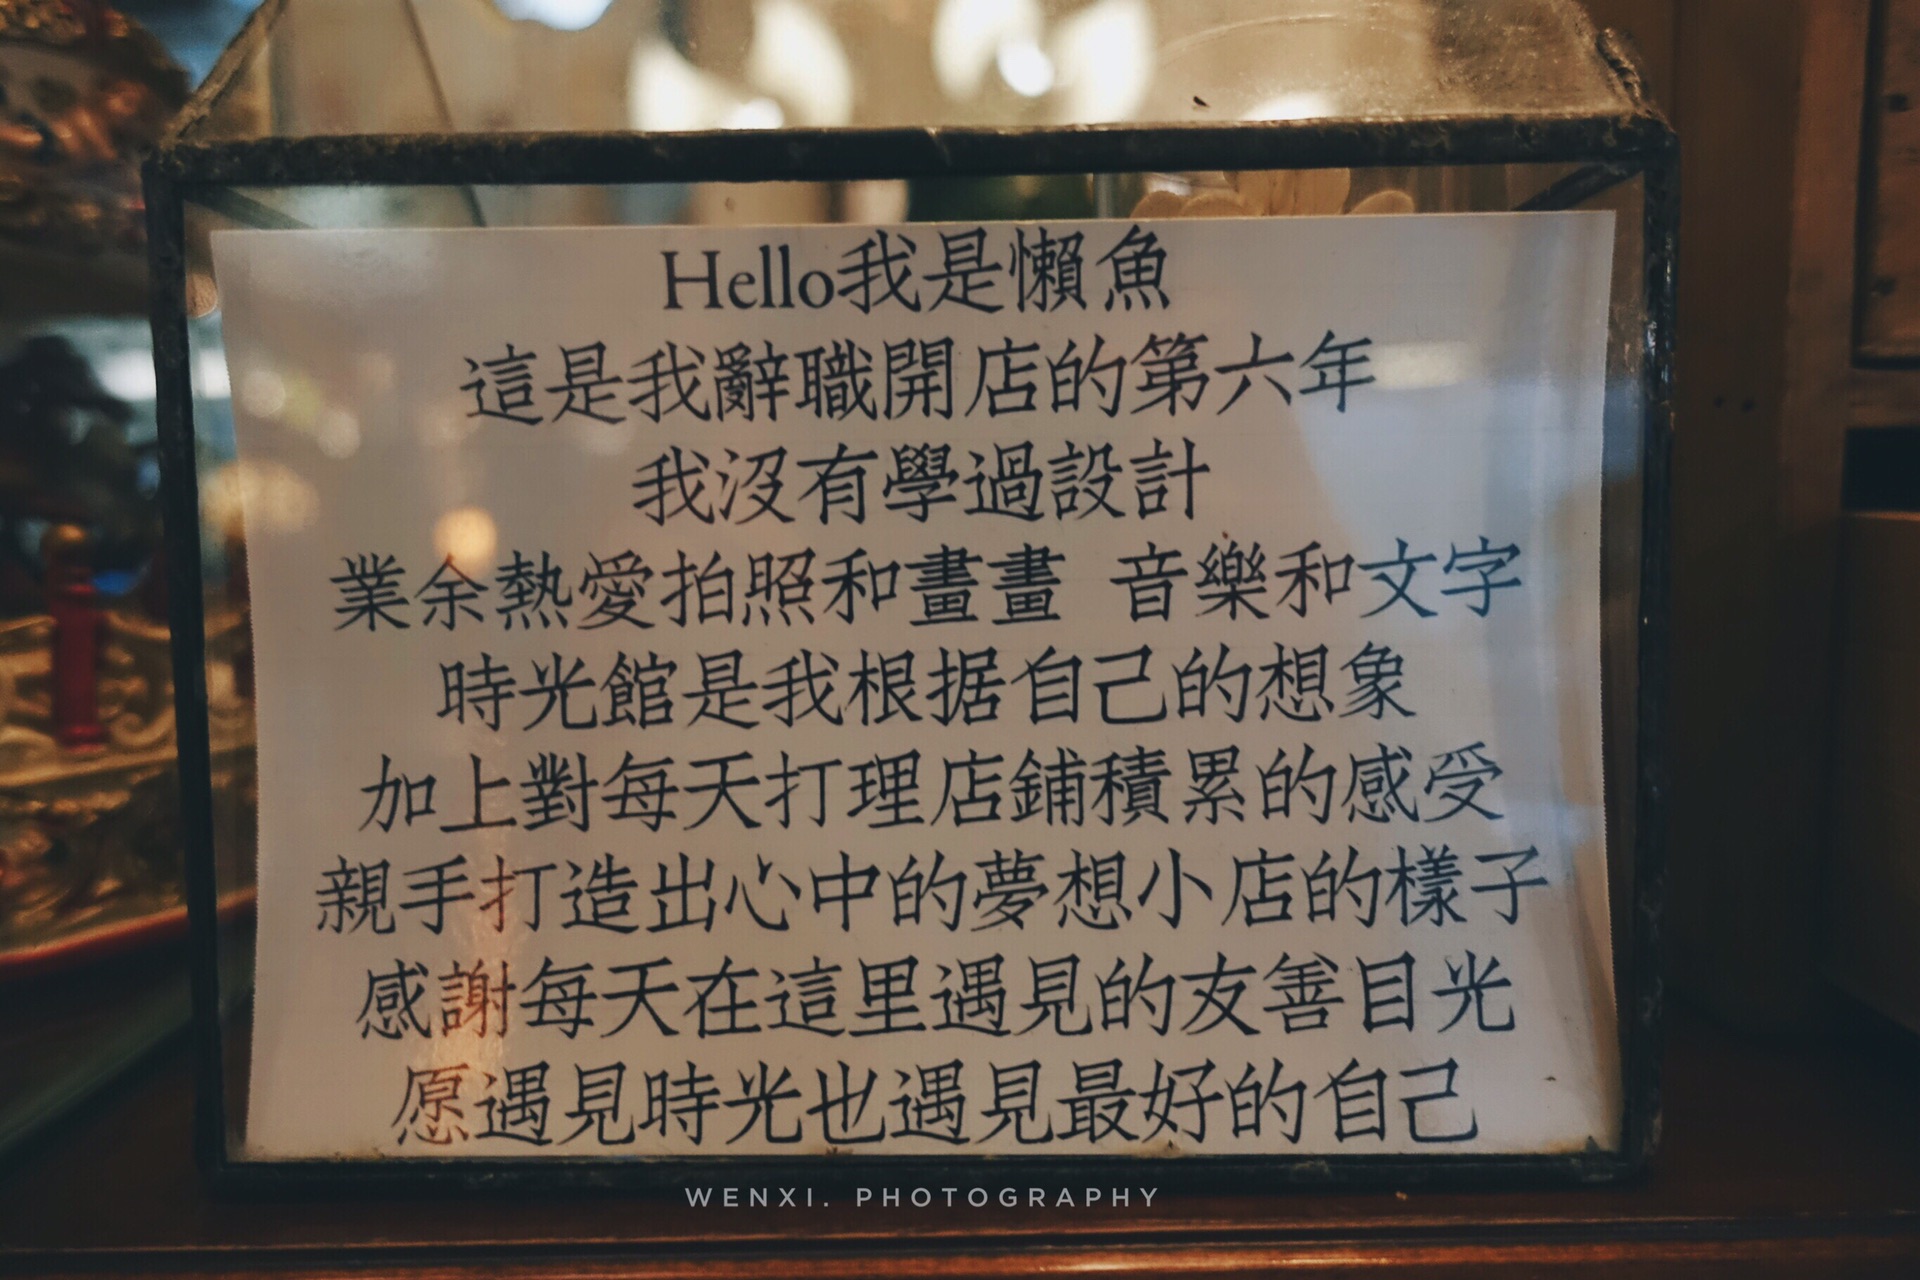 Hello我是懶魚
這是我辭職開店的第六年
我沒有學過設計
業余熱愛拍照和畫畫 音樂和文字
時光館是我根据自己的想象
加上對每天打理店鋪積累的感受
親手打造出心中的夢想小店的樣子
感謝每天在這里遇見的友善目光
愿遇見時光也遇見最好的自己
WENXI. PHOTOGRAPHY